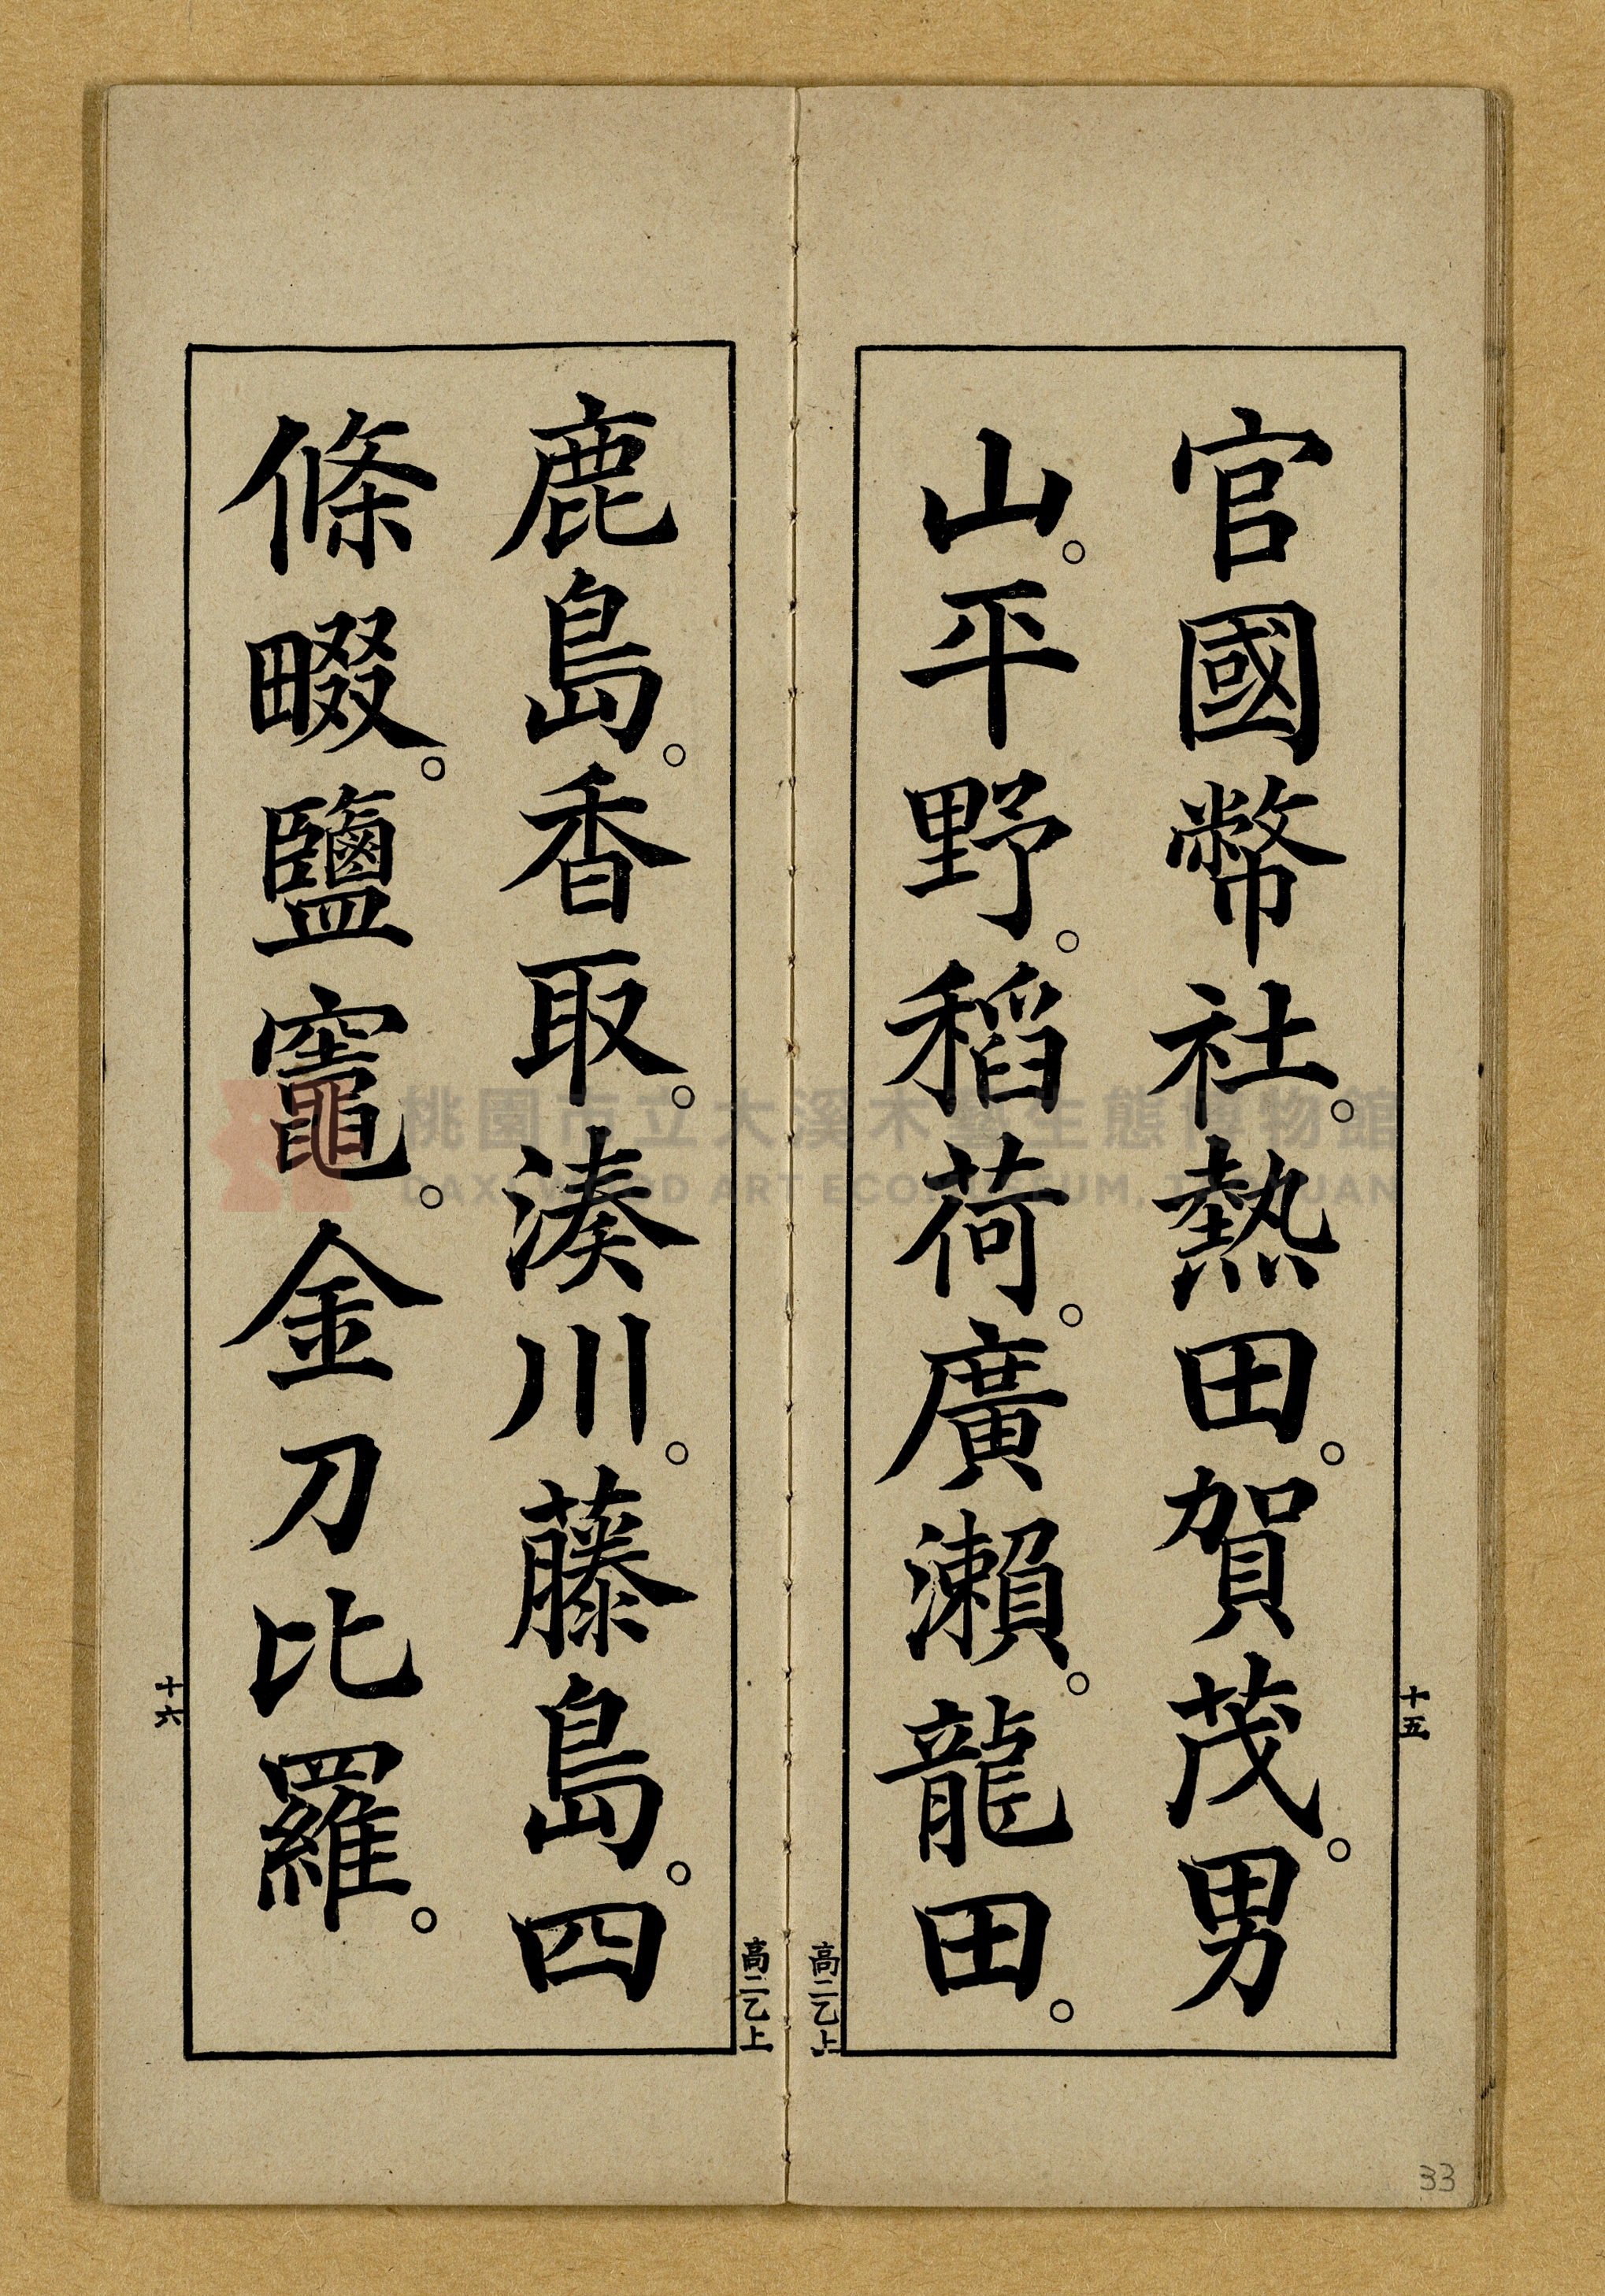 官國幣社。熱田。賀茂。男
山。平野。稻荷。廣瀨。龍田。
十五
高二乙上
鹿島。香取。湊川。藤島。四
條畷。鹽竈。金刀比羅。
十六
高二乙上
桃園市立大溪木藝生態博物館
DAXI WOOD ART ECOMUSEUM, TAOYUAN
33